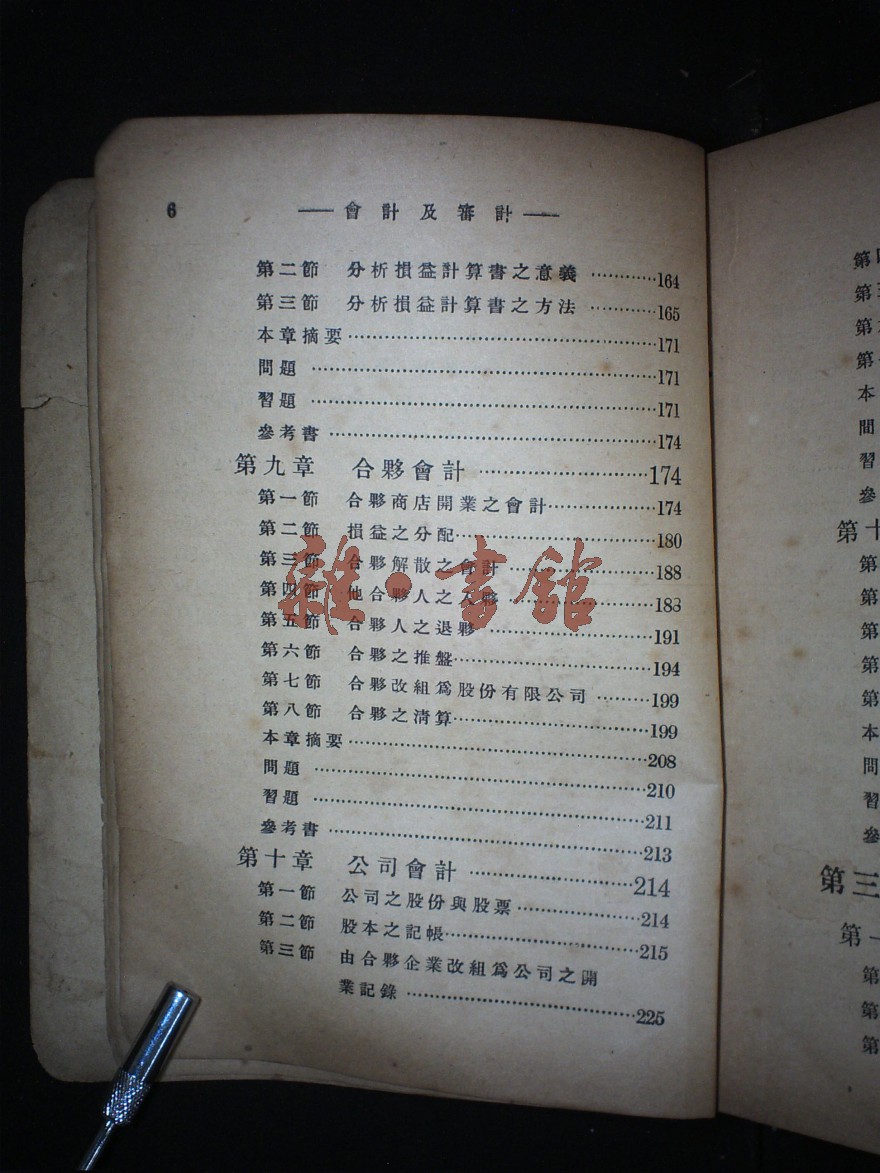 6 會計及審計
第二節 分析損益計算書之意義 …………164
第三節 分析損益計算書之方法 …………165
本章摘要…………171
問題 …………171
習題 …………171
參考書 …………174
第九章 合夥會計 …………174
第一節 合夥商店開業之會計…………174
第二節 損益之分配…………180
第三節 合夥解散之會計…………188
第四節 他合夥人之入夥…………188
第五節 合夥人之退夥 …………191
第六節 合夥之推盤…………194
第七節 合夥改組爲股份有限公司 …………199
第八節 合夥之清算…………199
本章摘要…………208
問題 …………210
習題 …………211
參考書 …………213
第十章 公司會計 …………214
第一節 公司之股份與股票 …………214
第二節 股本之記帳…………215
第三節 由合夥企業改組爲公司之開
業記錄 …………225
雜·書館
第
第
第
第
本
問
習
參
第十
第
第
第
第
第
本
問
習
參
第三
第一
第
第
第